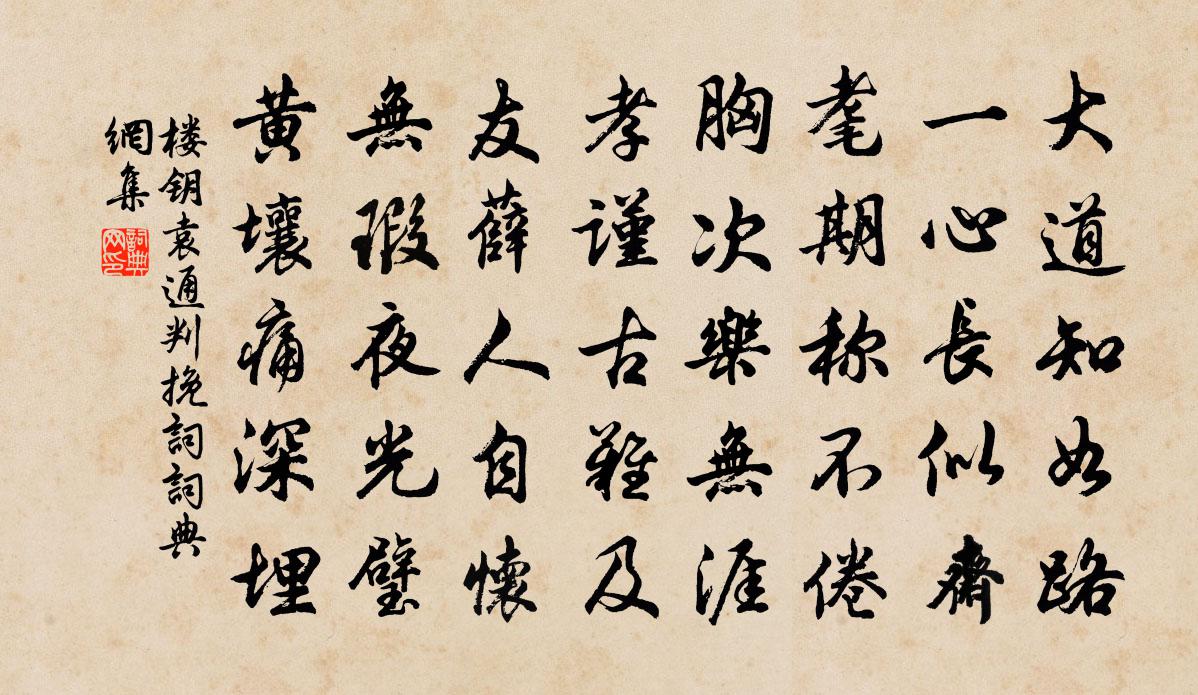 大道知如路
一心長似齋
耄期称不倦
胸次樂無涯
孝謹古難及
友薛人自懷
無瑕夜光璧
黄壤痛深埋
楼钥袁通判挽詞詞典
網集
詞典
网印